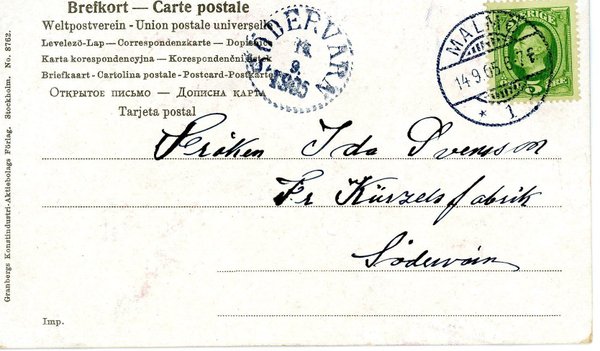 Brefkort — Carte postale
Weltpostverein - Union postale universelle
Levelező-Lap — Correspondenzkarte — Dopisnice
Karta korespondencyjna — Korespondenční lístek
Briefkaart - Cartolina postale - Postcard-Postkarte
Открытое письмо — Дописна карта
Tarjeta postal
SÖDERVÄRN
14
9
1905
MALMÖ
14.9.05
* 1
SVERIGE
5 ÖRE
Fröken Ida Svensson
Fr Kürzels fabrik
Södervärn
Granbergs Konstindustri-Aktiebolags Förlag. Stockholm. No. 8762.
Imp.